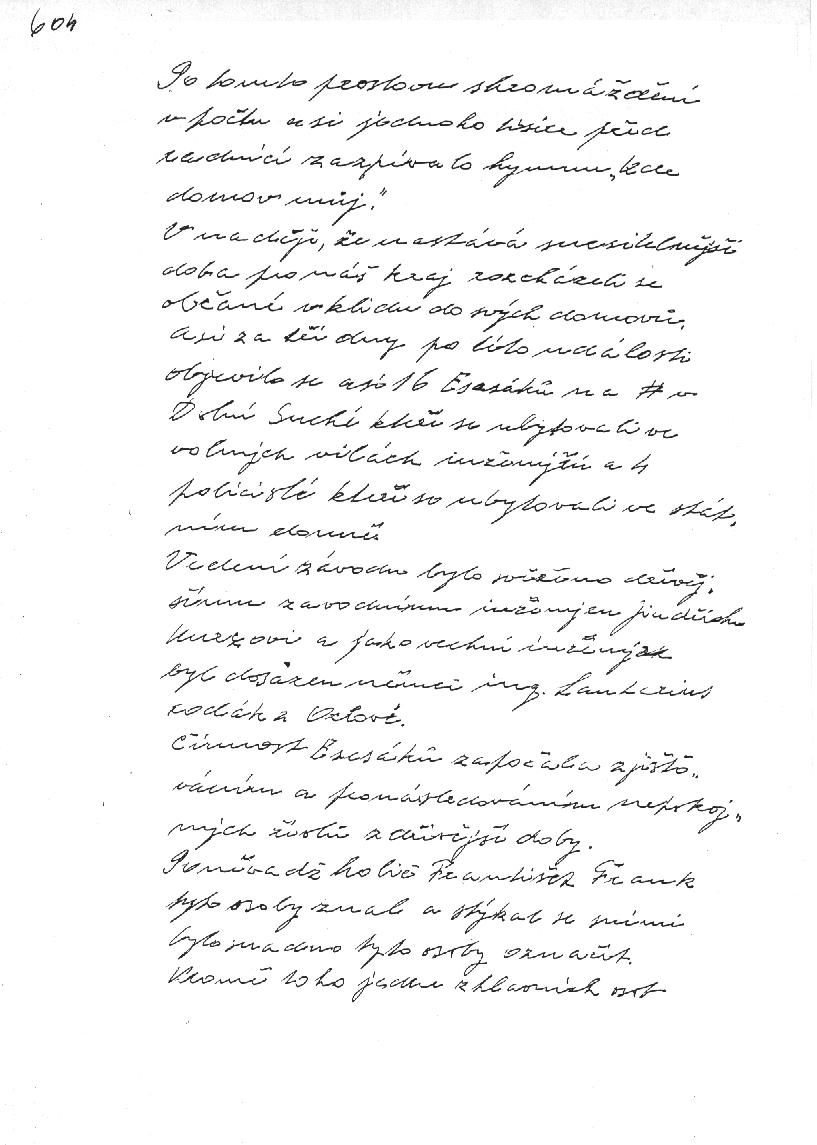 604
Po tomto proslovu shromáždění
v počtu asi jednoho tisíce před
radnicí zazpívalo hymnu „Kde
domov můj."
V naději, že nastává snesitelnější
doba pro náš kraj rozcházeli se
občané v klidu do svých domovů.
Asi za tři dny po této události
objevilo se asi 16 Esesáků na # v
Dolní Suché kteří se ubytovali ve
volných vilách inženýrů a 4
policisté kteří se ubytovali ve stát.
ním domě
Vedení závodu bylo svěřeno dřívěj.
šímu závodnímu inženýru Jindřichu
Kurzovi a jako vrchní inženýr
byl dosazen němec ing.
rodák z Orlové.
Činnost Esesáků započala zjišťo„
váním a pronásledováním nepokoj„
ných živlů z dřívější doby.
Poněvadž holič František Frank
tyto osoby znal a stýkal se s nimi
bylo snadno tyto osoby označit.
Kromě toho jedne z hlavních osob